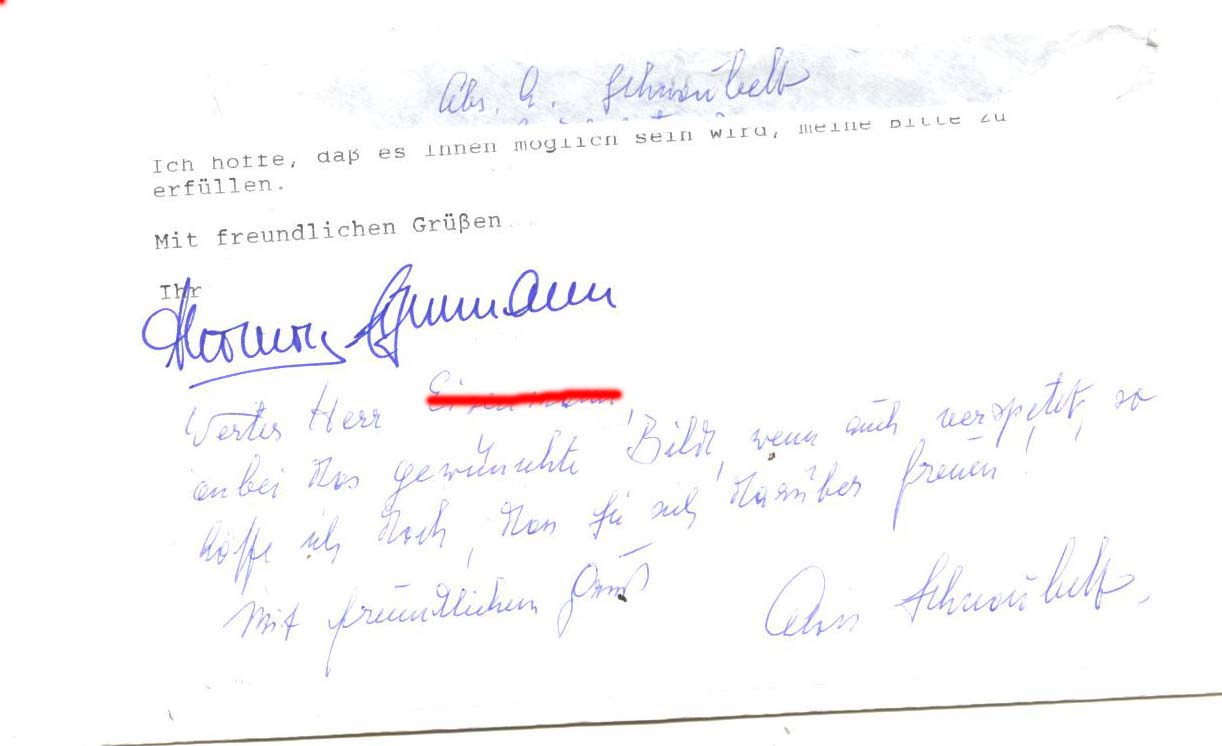 Abs. A. Schnaubelt
Ich hoffe, daß es Ihnen möglich sein wird, meine Bitte zu
erfüllen.
Mit freundlichen Grüßen
Ihr
Werter Herr
anbei das gewünschte Bild, wenn auch verspätet, so
hoffe ich doch, das Sie sich darüber freuen!
Mit freundlichem Gruß
Alois Schnaubelt.